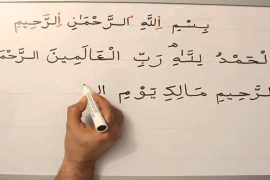 بِسْمِ اللَّهِ الرَّحْمَٰنِ الرَّحِيمِ
لْحَمْدُ لِلَّهِ رَبِّ الْعَالَمِينَ الرَّحْمَ
لرَّحِيمِ مَالِكِ يَوْمِ